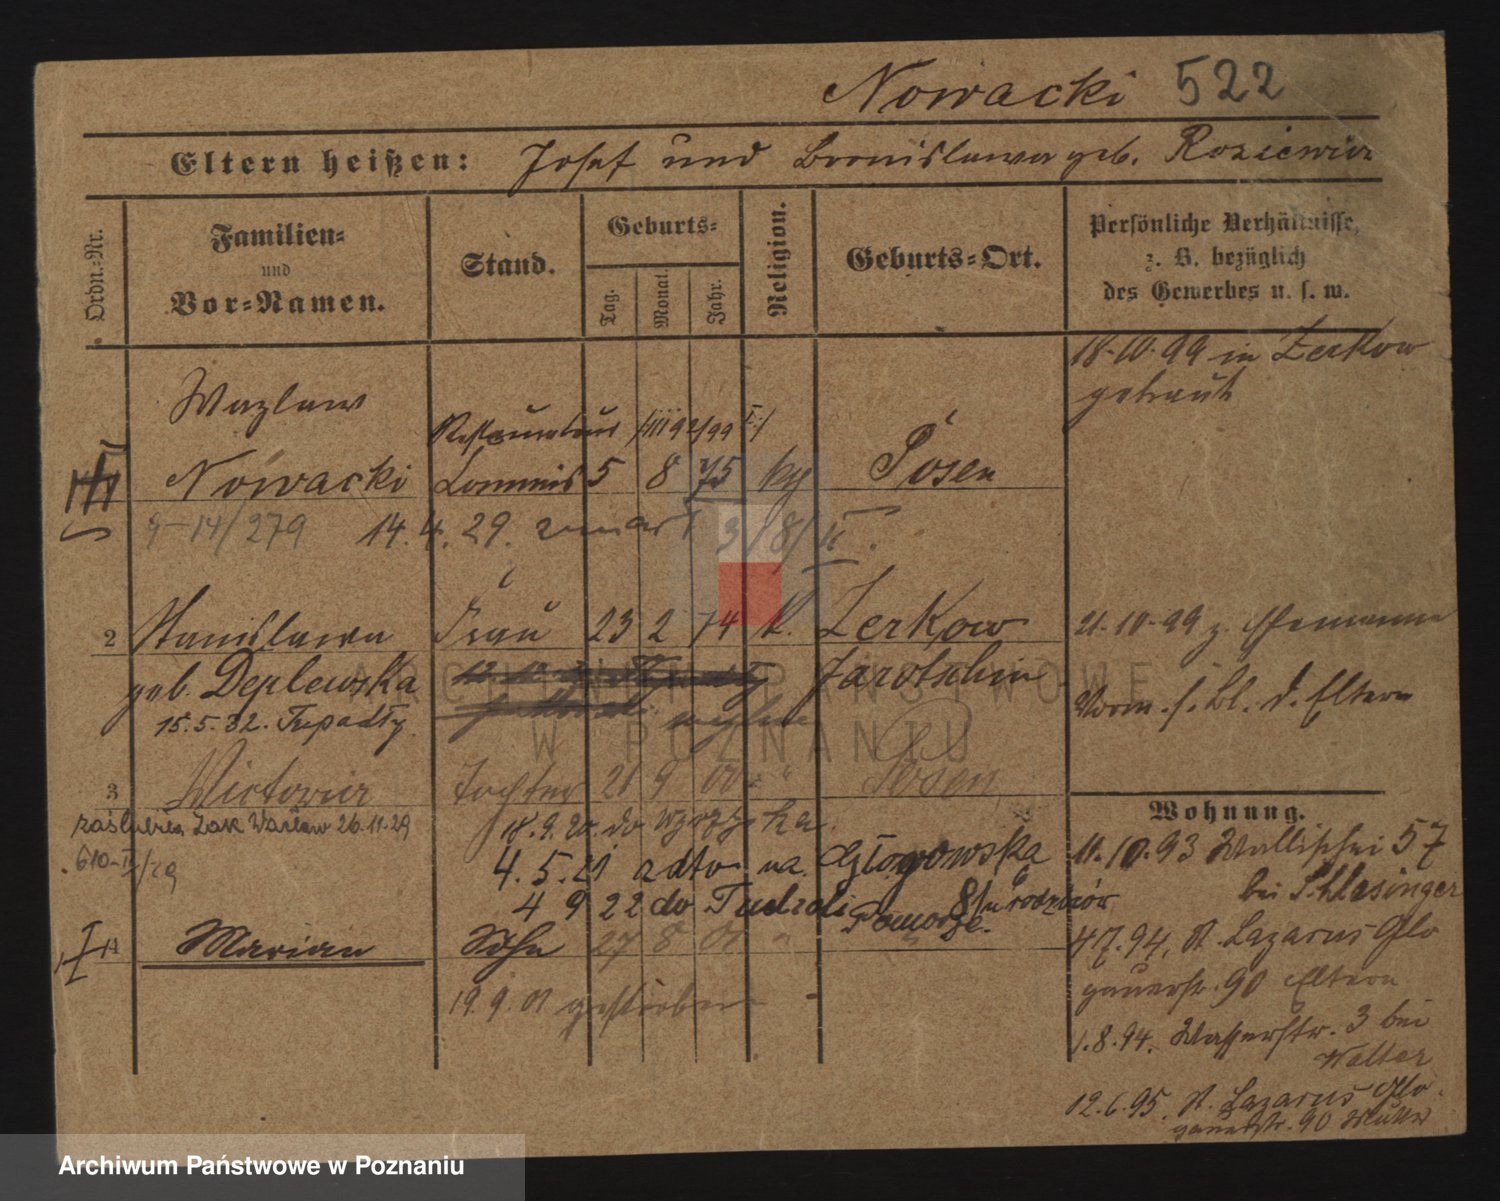 Nowacki 522
Eltern heißen: Josef und Bronislawa geb. Roziewicz
Ordn.-Nr.
Familien-
und
Vor-Namen.
Stand.
Geburts-
Tag.
Monat.
Jahr.
Religion.
Geburts-Ort.
Persönliche Verhältnisse,
z. B. bezüglich
des Gewerbes u. s. w.
18.10.99 in Zerkow
getraut
Wazlaw
Nowacki Commis 5 8 75 Posen
9-14/279 14.4.29. zmarł
2 Stanislawa Frau 23 2 74 k. Zerkow
geb. Deplewska Jarotschin
15.5.32.
21.10.99 z. Ehemanne
Vorm. s. Bl. d. Eltern
3 Victoria Tochter 21 9 00 " Posen
zaślubiła Żak Wacław 26.11.29
610-II/29
18.9.20. do
4.5.21 na Głogowska
4 9 22 do Tucholi Pomorze.
84 u rodziców
4 Marian Sohn 27 8 01 "
19.9.01 gestorben
Wohnung.
11.10.93 Wallischei 57
bei Schlesinger
4 7. 94, St. Lazarus Glo
gauerstr. 90 Eltern
1.8.94. Wasserstr. 3 bei
Walter
12.6.95. St. Lazarus Glo
gauerstr. 90 Mutter
ARCHIWUM PAŃSTWOWE
W POZNANIU
Archiwum Państwowe w Poznaniu